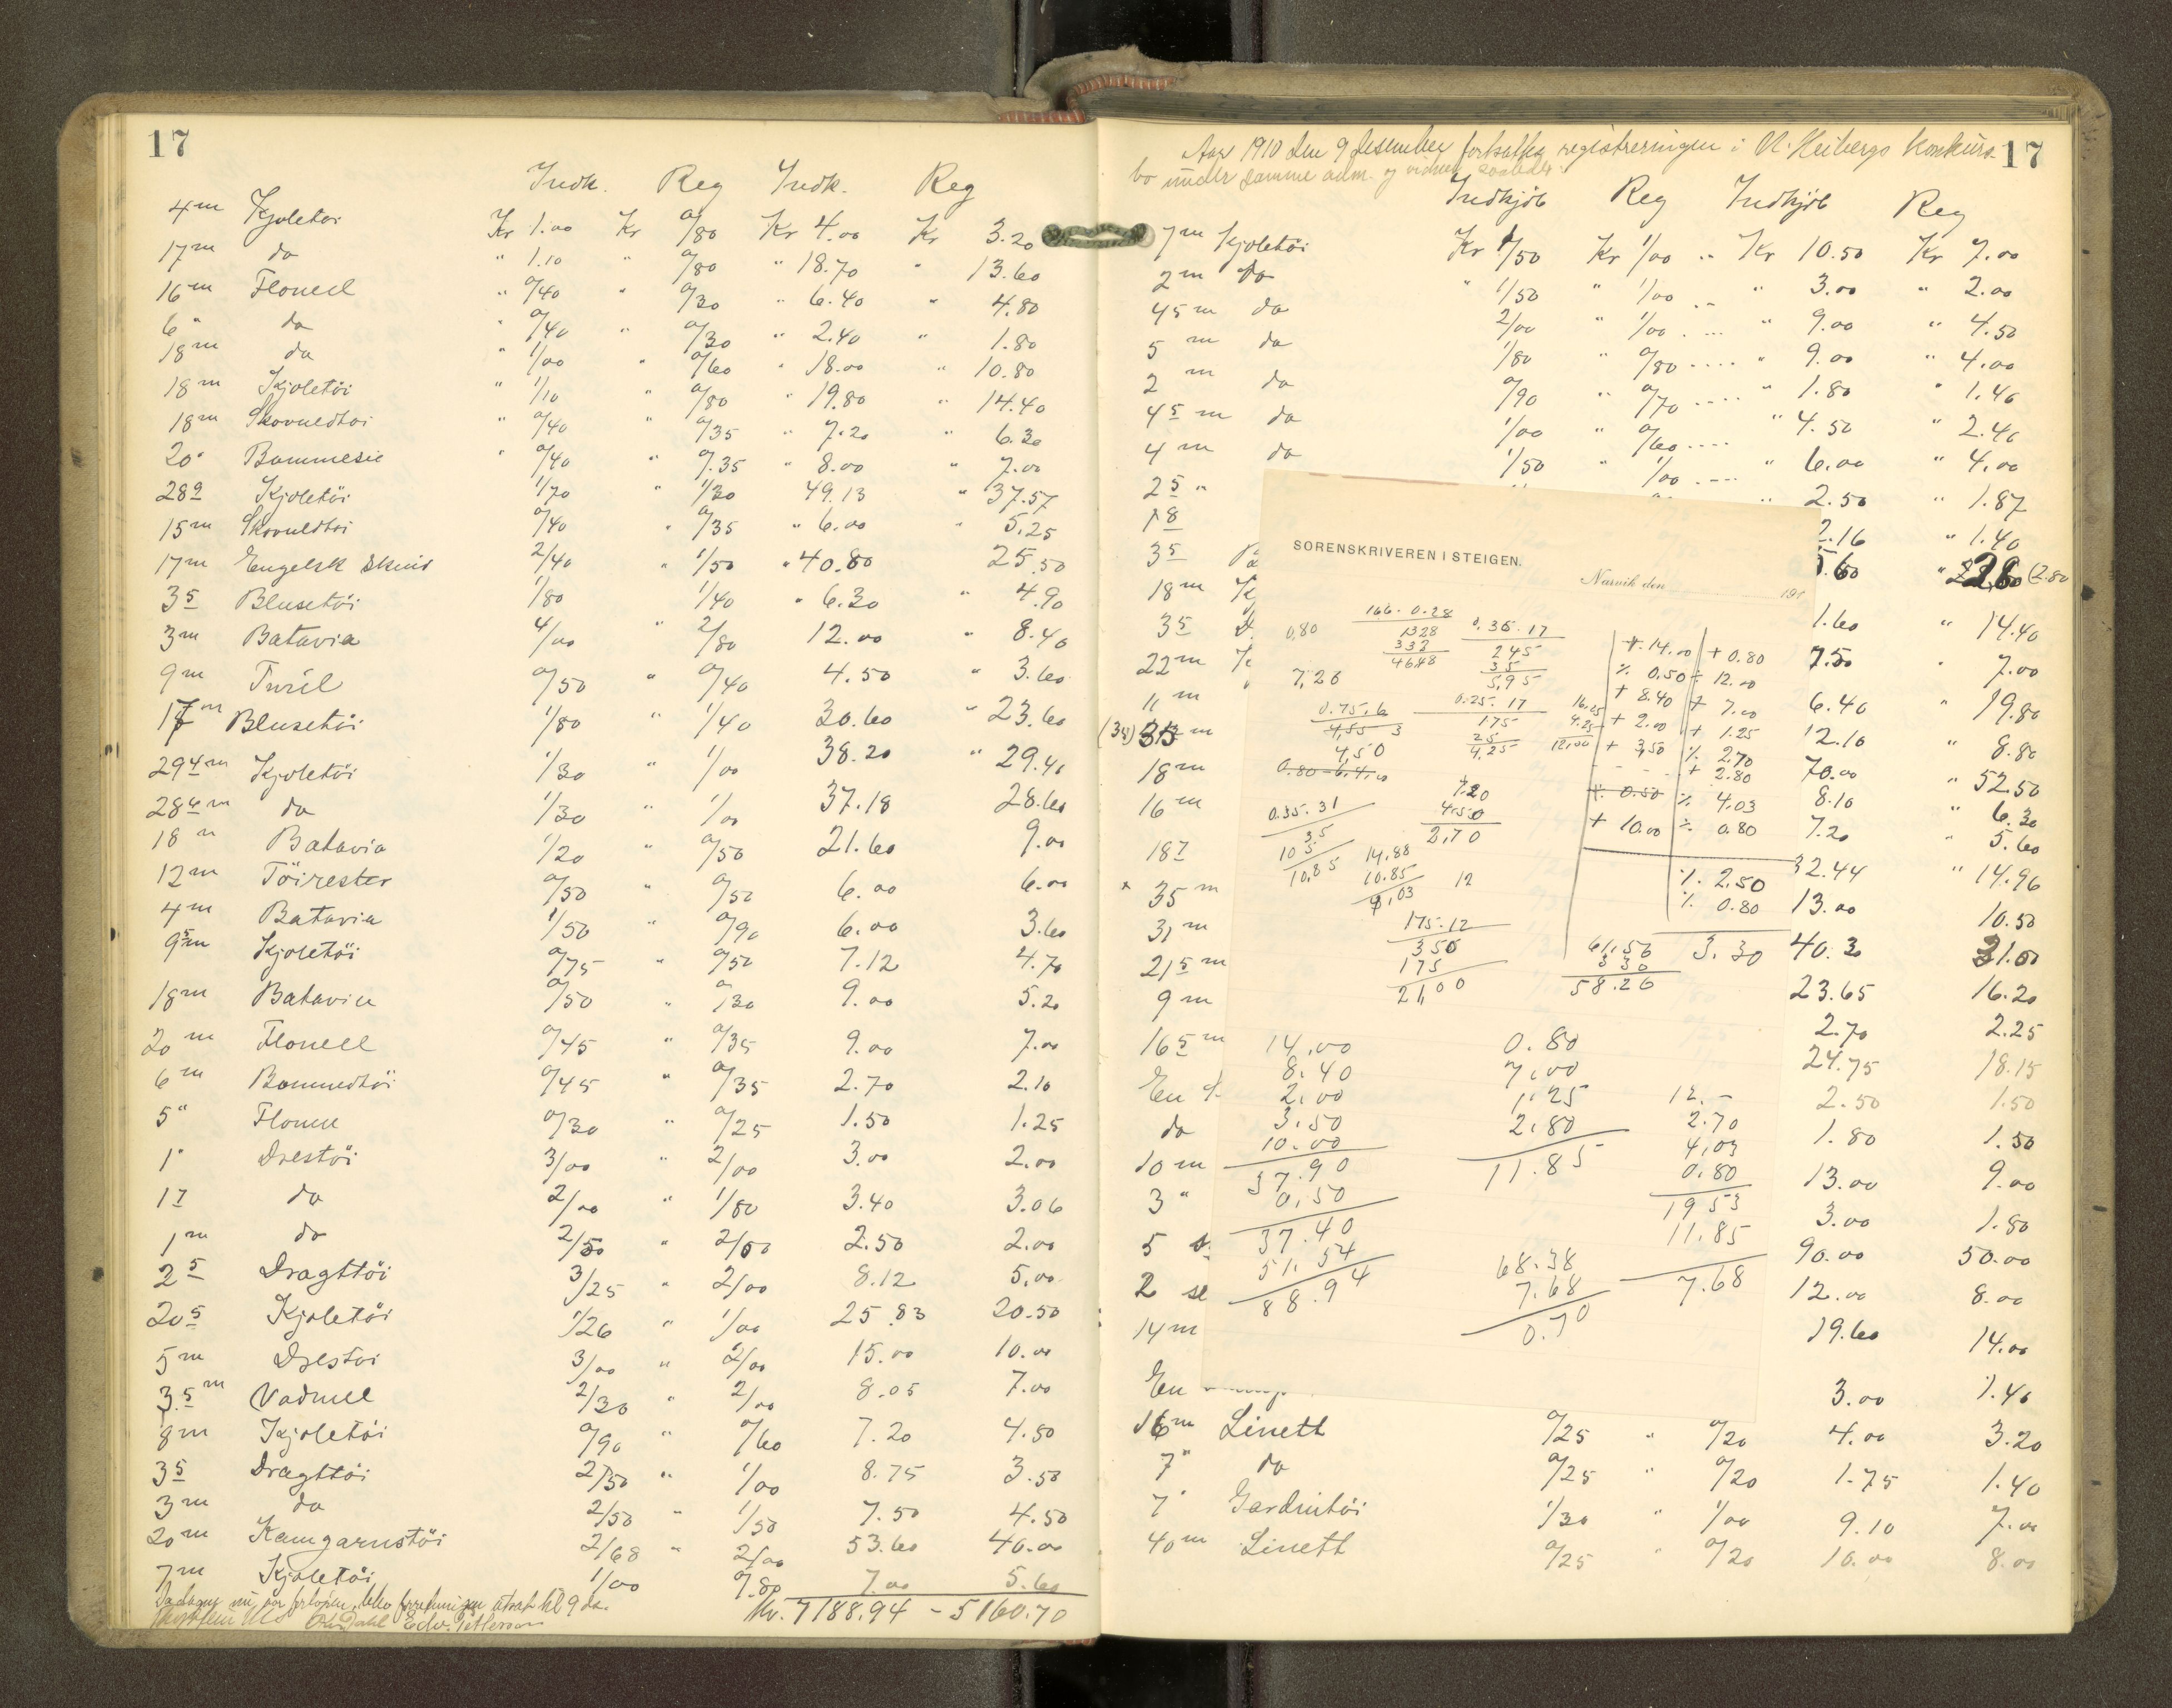 17
Indk. Reg Indk. Reg
4m Kjoletöi Kr 1.00 Kr 0/80 Kr 4.00 Kr 3.20
17m do " 1.10 " 0/80 " 18.70 " 13.60
16m Flonell " 0/40 " 0/30 " 6.40 " 4.80
6" do " 0/40 " 0/30 " 2.40 " 1.80
18m do " 1/00 " 0/60 " 18.00 " 10.80
18m Kjoletöi " 1/10 " 0/80 " 19.80 " 14.40
18m " 0/40 " 0/35 " 7.20 " 6.30
20" Bommesie " 0/40 " 0.35 " 8.00 " 7.00
289 Kjoletöi 1/70 " 1/30 49.13 " 37.57
15m 0/40 " 0/35 " 6.00 " 5.25
17m Engelsk 2/40 " 1/50 " 40.80 25.50
35 Blusetöi 1/80 1/40 " 6.30 " 4.90
3m Batavia 4/00 " 2/80 12.00 " 8.40
9m 0/50 " 0/40 4.50 " 3.60
17m Blusetöi 1/80 " 1/40 30.60 " 23.60
294m Kjoletöi 1/30 " 1/00 38.20 " 29.40
286m do 1/30 " 1/00 37.18 28.60
18" Batavia 1/20 " 0/50 21.60 9.00
12m Töirester 0/50 " 0/50 6.00 6.00
4m Batavia 1/50 " 0/90 6.00 3.60
95m Kjoletöi 0/75 " 0/50 7.12 4.70
18m Batavia 0/50 " 0/30 9.00 5.20
20m Flonell 0/45 " 0/35 9.00 7.00
6m 0/45 " 0/35 2.70 2.10
5" 0/30 " 0/25 1.50 1.25
1" Drestöi 3/00 " 2/00 3.00 2.00
17 do 2/00 " 1/80 3.40 3.06
1m do 2/50 " 2/00 2.50 2.00
25 Dragttöi 3/25 " 2/00 8.12 5.00
205 Kjoletöi 1/26 " 1/00 25.83 20.50
5m Drestöi 3/00 " 2/00 15.00 10.00
3.5m Vadmel 2/30 " 2/00 8.05 7.00
8m Kjoletöi 0/90 " 0/60 7.20 4.80
35 Dragttöi 2/50 " 1/00 8.75 3.50
3m do 2/50 " 1/50 7.50 4.50
20m Kamgarnstöi 2/68 " 2/00 53.60 40.00
7m Kjoletöi 1/00 0.80 7.00 5.60
kl 9
Kr. 7188.94 - 5160.70
Edv. Pettersen
17
Aar 1910 den 9 desember fortsattes registreringen i N. Heibergs konkurs-
bo under samme adm. og vidner saaledes:
Indkjöb Reg Indkjöb Reg
7m Kjoletöi Kr 1/50 Kr 1/00 " Kr 10.50 Kr 7.00
2m do " 1/50 " 1/00 " 3.00 " 2.00
45m do 2/00 " 1/00 " 9.00 " 4.50
5m do 1/80 " 0/80 " 9.00 " 4.00
2m do 0/90 " 0/70 " 1.80 " 1.40
45m do 1/00 " 0/60 " 4.50 " 2.40
4m do 1/50 " 1/00 " 6.00 " 4.00
25" " 2.50 " 1.87
18 2.16 " 1.40
35 5.60 28 (2.80
18m 1.60 " 14.40
35 7.50 " 7.00
22m 6.40 " 19.80
11m 12.10 " 8.80
(34) 35m 70.00 " 52.50
18m 8.10 " 6.30
16m 7.20 " 5.60
187 32.44 " 14.96
x 35m 13.00 10.50
31m 40.30 21.00
215m 23.65 16.20
9m 2.70 2.25
165m 24.75 18.15
En 2.50 1.50
do 1.80 1.50
10m 13.00 9.00
3" 3.00 1.80
5 90.00 50.00
2 12.00 8.00
14m 19.60 14.00
En 3.00 1.40
16m Linett 0/25 " 0/20 4.00 3.20
7" do 0/25 " 0/20 1.75 1.40
7" Gardintöi 1/30 " 1/00 9.10 7.00
40m Linett 0/25 " 0/20 10.00 8.00
SORENSKRIVEREN I STEIGEN.
Narvik den 191
0,80
166. 0.28
1328
332
4648
0.35. 17
245
35
5,95
7,26
0.75.6
4,55 3
4,50
0.25. 17
175
25
4,25
0.80 - 6.4.00
0.35.31
35
105
10,85
7.20
4.50
2,70
14,88
10.85
4,03
12
175.12
350
175
21,00
+ 14.00 + 0.80
% 0.50 % 12.00
+ 8.40 + 7.00
+ 2.00 + 1.25
+ 3,50 % 2.70
+ 2.80
% 0.50 % 4.03
+ 10.00 % 0.80
% 2.50
% 0.80
3.30
61,56
3 30
58.26
14,00
8.40
2,00
3,50
10.00
37.90
0,50
37.40
51.54
88.94
0.80
7,00
1,25
2,80
11.85
12.-
2.70
4,03
0,80
19 53
11,85
7.68
68.38
7.68
0.70